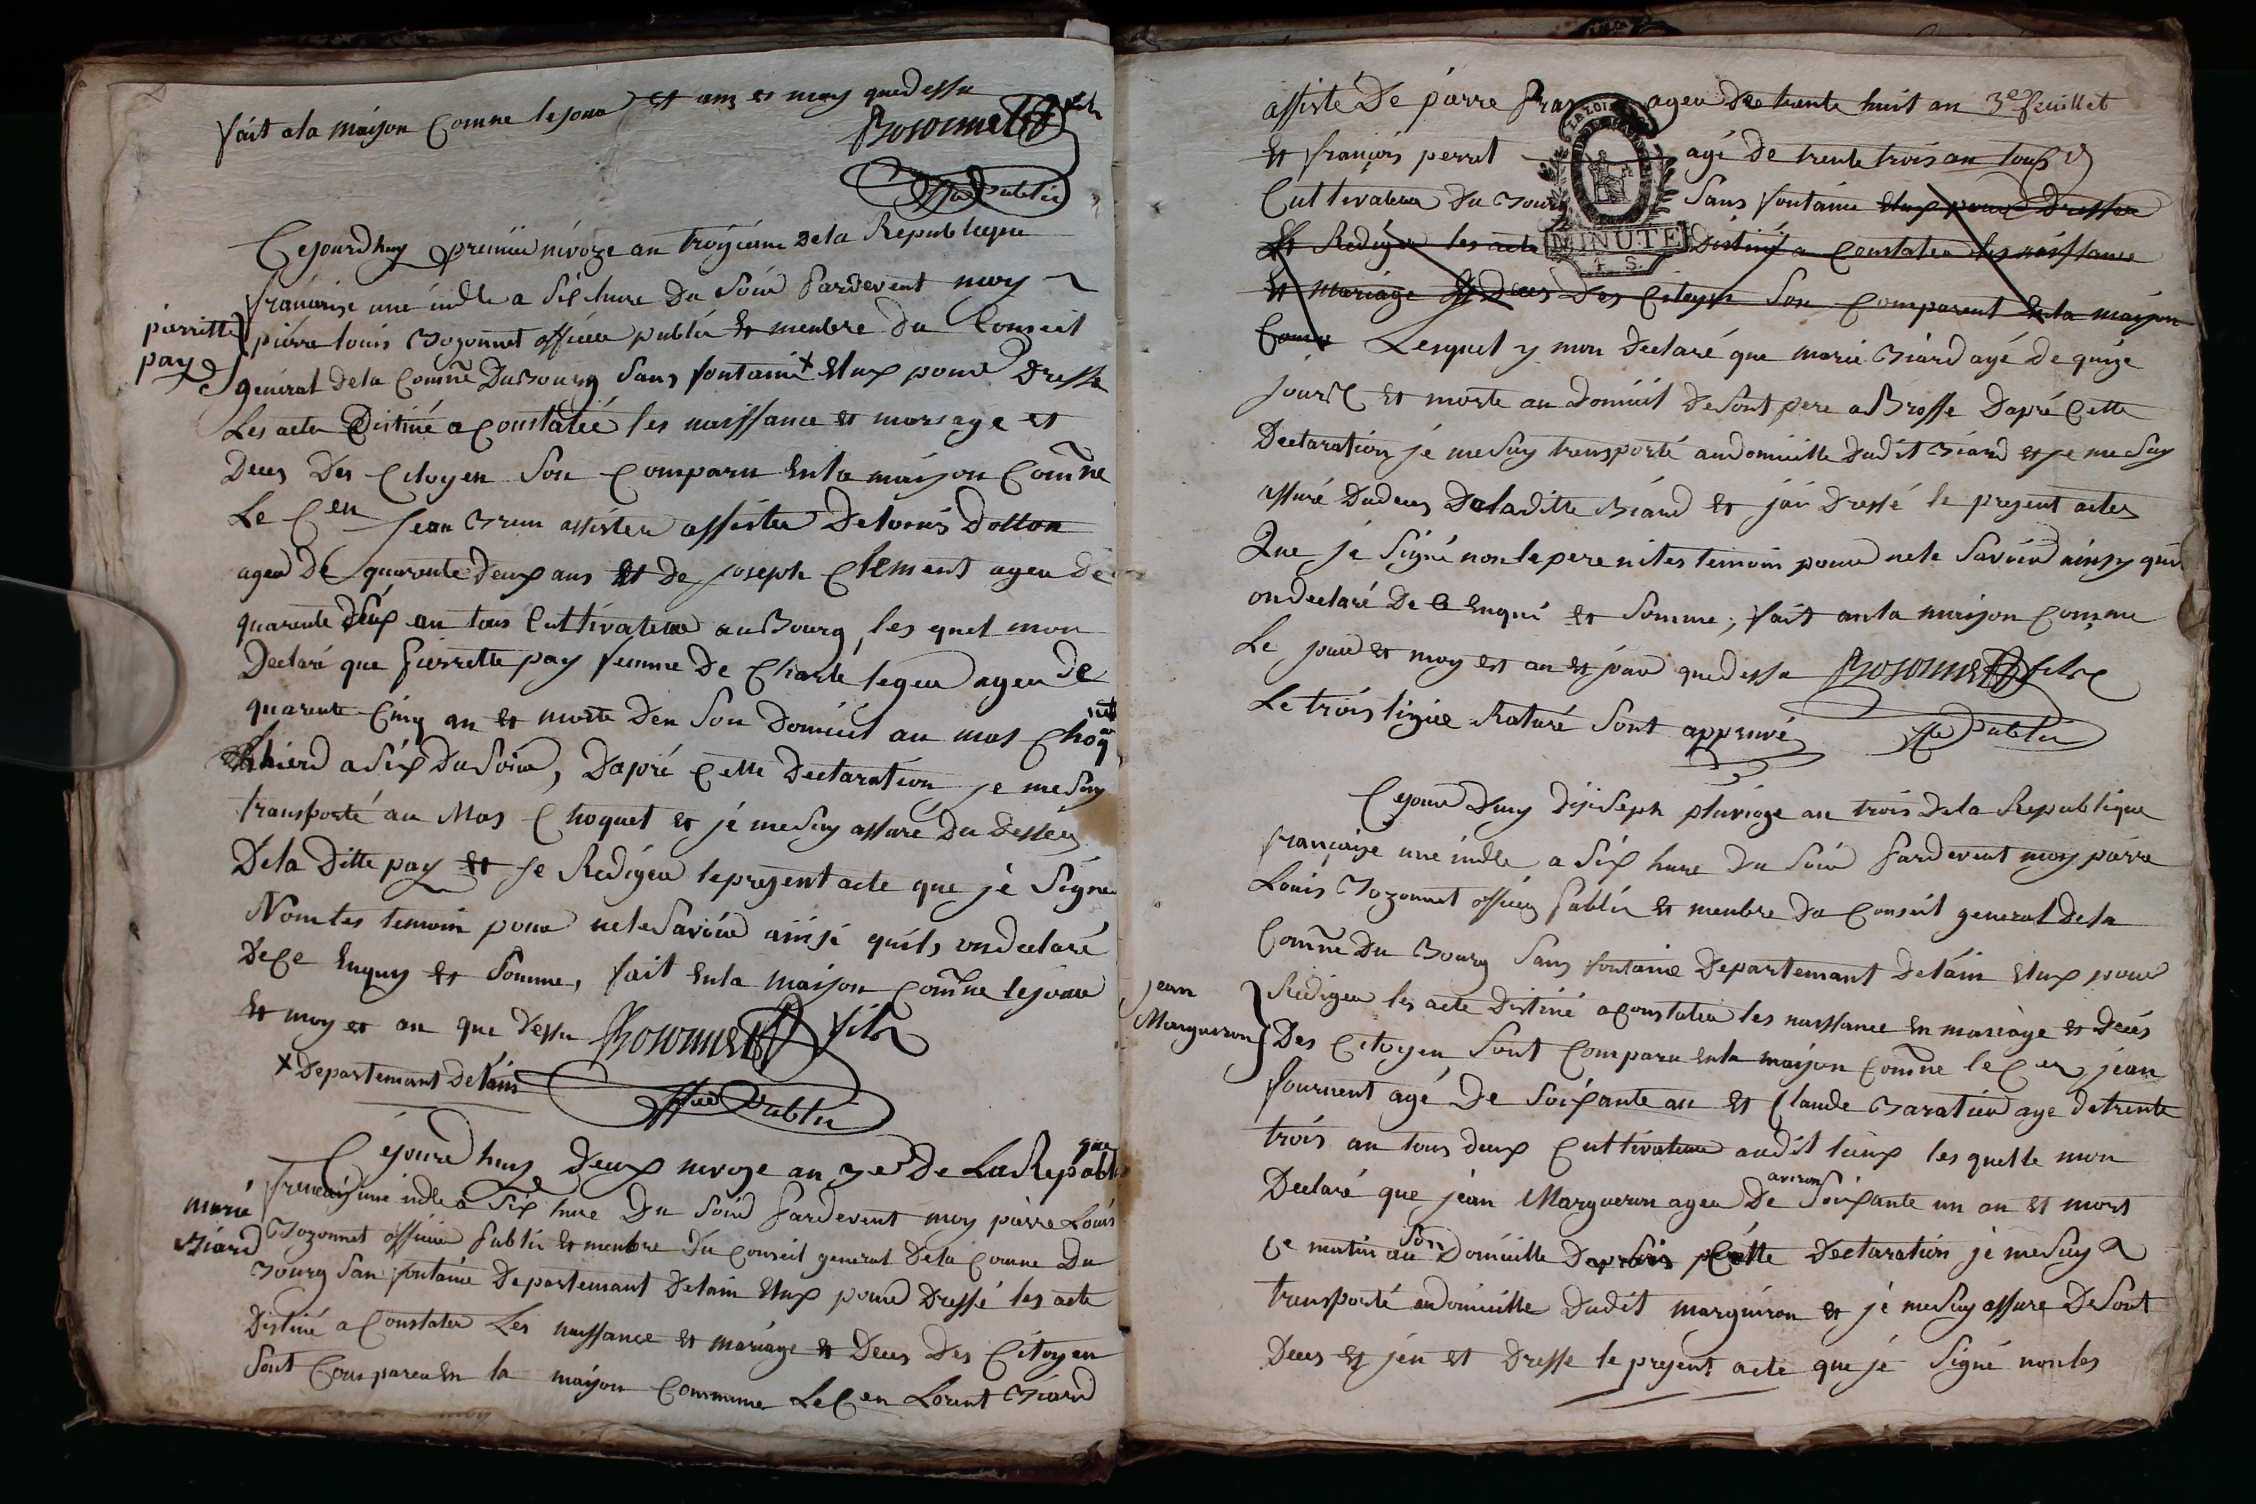 fait a la maison Comne le jour et ans et moy que dessu
Bozonnet fils
off. Public
Cejourdhuy premier nivoze an troizieme dela Republique
francaise une indle a Six hure du Soir pardevent moy
pierre louis Bozonnet officier public Et menbre du Conseil
pierrette
pay
general dela Comne Du Bourg Sans fontaine + Elux pour Dresse
Les acte Distiné a Constatée les naissance et mariage et
Deces Des Citoyen Son Comparu En la maison Comne
Le Cen Jean Brun assister assister De louis Dotton
agea De quarente Deux ans Et de joseph Clement agea de
quarente Deux an tous Cultivateur au Bourg les quel mon
Declaré que pierrette pay femme De Charle leger agea de
quarente Cinq an et morte Den Son Domicil au mas Choquet
hierd a Six Du Soire, Dapré Cette Declaration je me Suy
transporté au Mas Choquet et jé me Suy assuré Du Desse
Dela Ditte pay Et je Redigea le present acte que jé Signe
Non les temoin pour nele Savoir ainsi quils on declaré
De Ce Enquy et Somme, fait En la maison Comne le jour
Et moy et an que Dessu Bozonnet fils
+ Departemant De lain
off. Public
Cejourd huy Deux nivoze an 3e De La Republique
francaise une indle a Six hure Du Soird pardevent moy pierre Louis
marie
Biard
Bozonnet officier Public Et menbre Du Conseil general Dela Comne Du
Bourg San fontaine Departemant De lain Elux pour Dressé les acte
Distiné a Constater Les naissance et mariage et Deces Des Citoyen
Sont Comparu En la maison Commune Le Cen Lorent Biard
assisté De pierre agea De trente huit an 3e feuillet
LA LOI
Et françois perret agé De trente trois an tous
Cultivateur Du Bourg Sans fontaine Elux pour Dresser
Et Rediger les acte Distiné a Constater les naissance
MINUTE
4. S.
Et mariage Et Deces Des Citoyen Son Comparent En la maison
Comne Lesquel y mon Declaré que marie Biard agé De quize
jours et morte au Domicil De Sont pere a Brosse Dapré Cette
Declaration jé me Suy transporté audomicille Dudit Biard et je me Suy
assuré Dudeces Dela ditte Biard et jai Dressé le present actes
Que jé Signé non le pere ni les temoin pour nele Savoir ainsy quil
on declaré De Ce Enqui et Somme, fait an la maison Comne
Le jour et moy et an et jour que dessu Bozonnet fils
Le trois ligne Raturé Sont appruvé
off. Public
Cejourd huy Dixseph pluvioze an trois Dela Republique
française une indle a Six hure Du Soir pardevent moy pierre
Louis Bozonnet officier Public Et menbre Du Conseil general Dela
Comne Du Bourg Sans fontaine Departemant De lain Elux pour
jean
Margueron
Redigea les acte Distiné a Constater les naissance En mariage et Deces
Des Citoyen Sont Comparu En la maison Comne le Cen jean
fournent agé De Soixante an Et Claude Baratier age de trente
trois an tous deux Cultivateur audit lieux les quelle mon
Declaré que jean Margueron agea De aviron Soixante un an Et mort
Ce matin au Son Domicille Daprés Cette Declaration jé me Suy
transporté audomicille Dudit margueron et jé me Suy assure De Sont
Deces et jen et Dresse le present acte que jé Signé non les